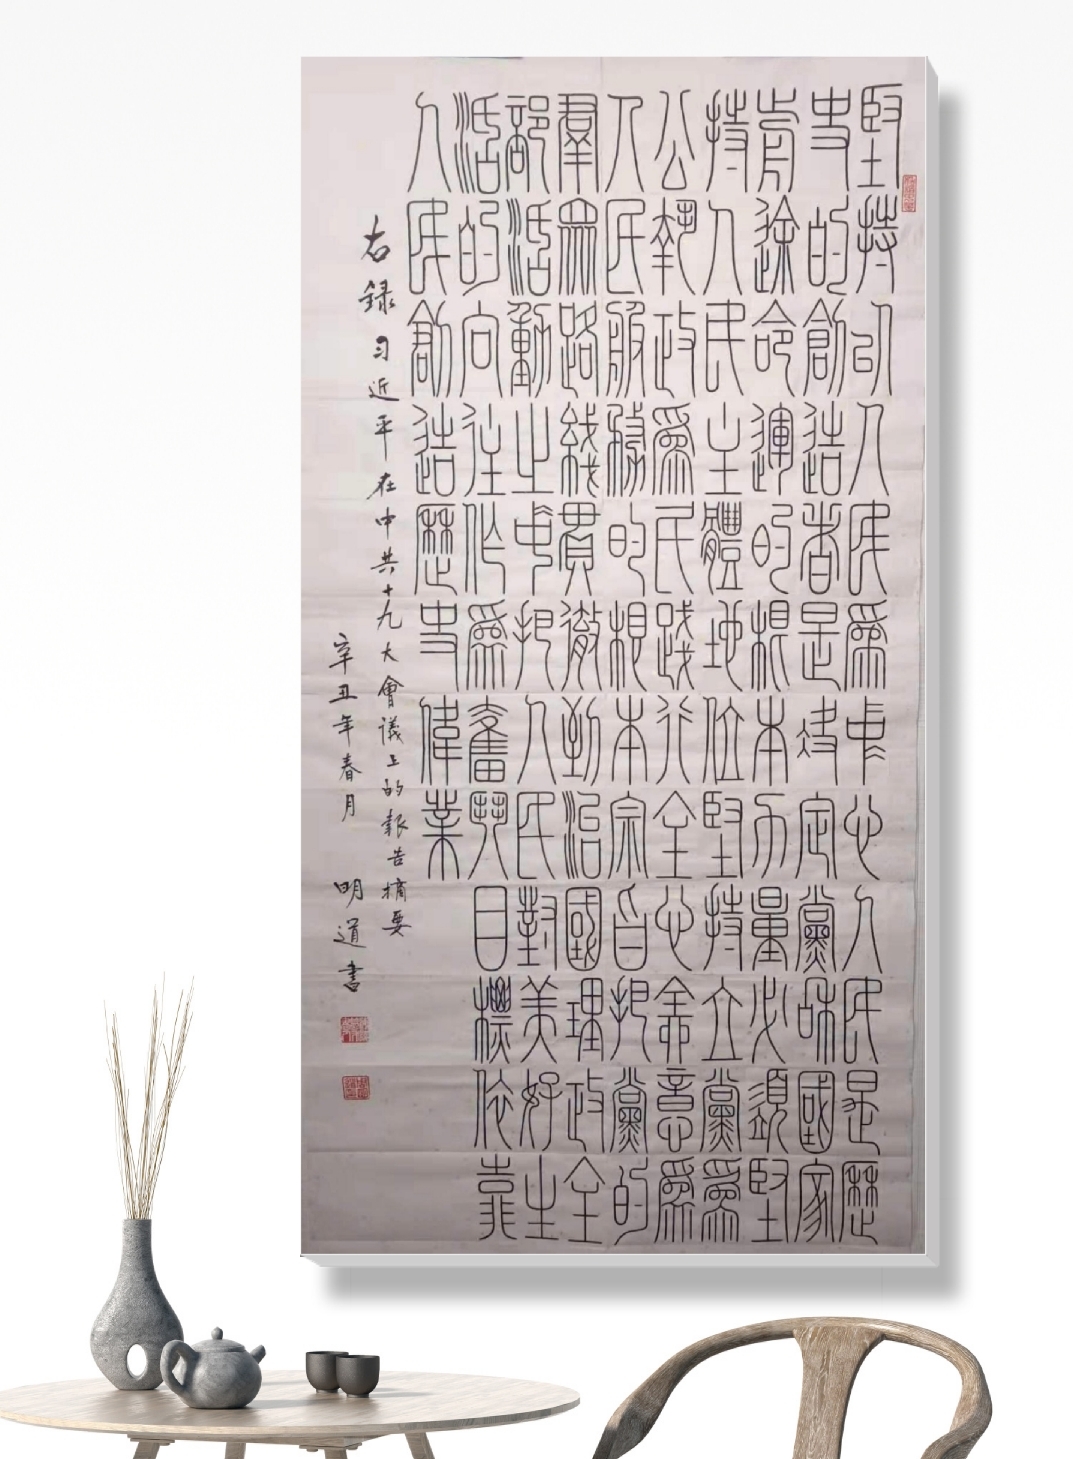 堅持以人民爲中心人民是歷
史的創造者是決定黨和國家
前途命運的根本力量必須堅
持人民主體地位堅持立黨爲
公執政爲民踐行全心全意爲
人民服務的根本宗旨把黨的
羣眾路綫貫徹到治國理政全
部活動之中把人民對美好生
活的向往作爲奮鬥目標依靠
人民創造歷史偉業
右録习近平在中共十九大會議上的報告摘要
辛丑年春月 明道書